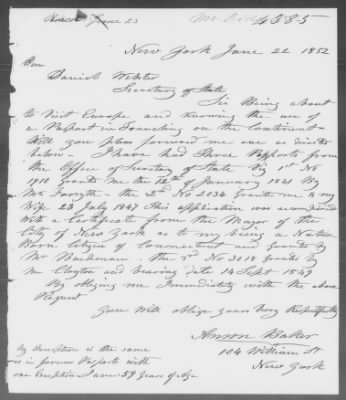 June 23
4385
New York June 22 1852
Hon
Daniel Webster
Secretary of State
Sir Being about
to Visit Europe and Knowing the use of
a Passport in Traveling on the Continent
Will you please forward me one as directed
below - I have had Three Passports from
the Office of Secretary of State Viz 1st No
Granted me the of January 1841 By
Mr Forsyth - the 2nd No 2034 Granted me &
Wife 28 July 1847 This application was accompanied
With a Certificate from the Mayor of the
City of New York as to my being a Native
Born Citizen of Connecticut and Granted by
Mr Buchanan. the 3rd No 3018 Granted by
Mr Clayton and bearing date 14 Sept 1849
By obliging me Immediately with the above
Request
Yours Will Oblige Yours Very Respectfully
Anson Baker
104 William St
New York
My Description is the same
as in former Passports with
one Exception I am 59 Years of Age